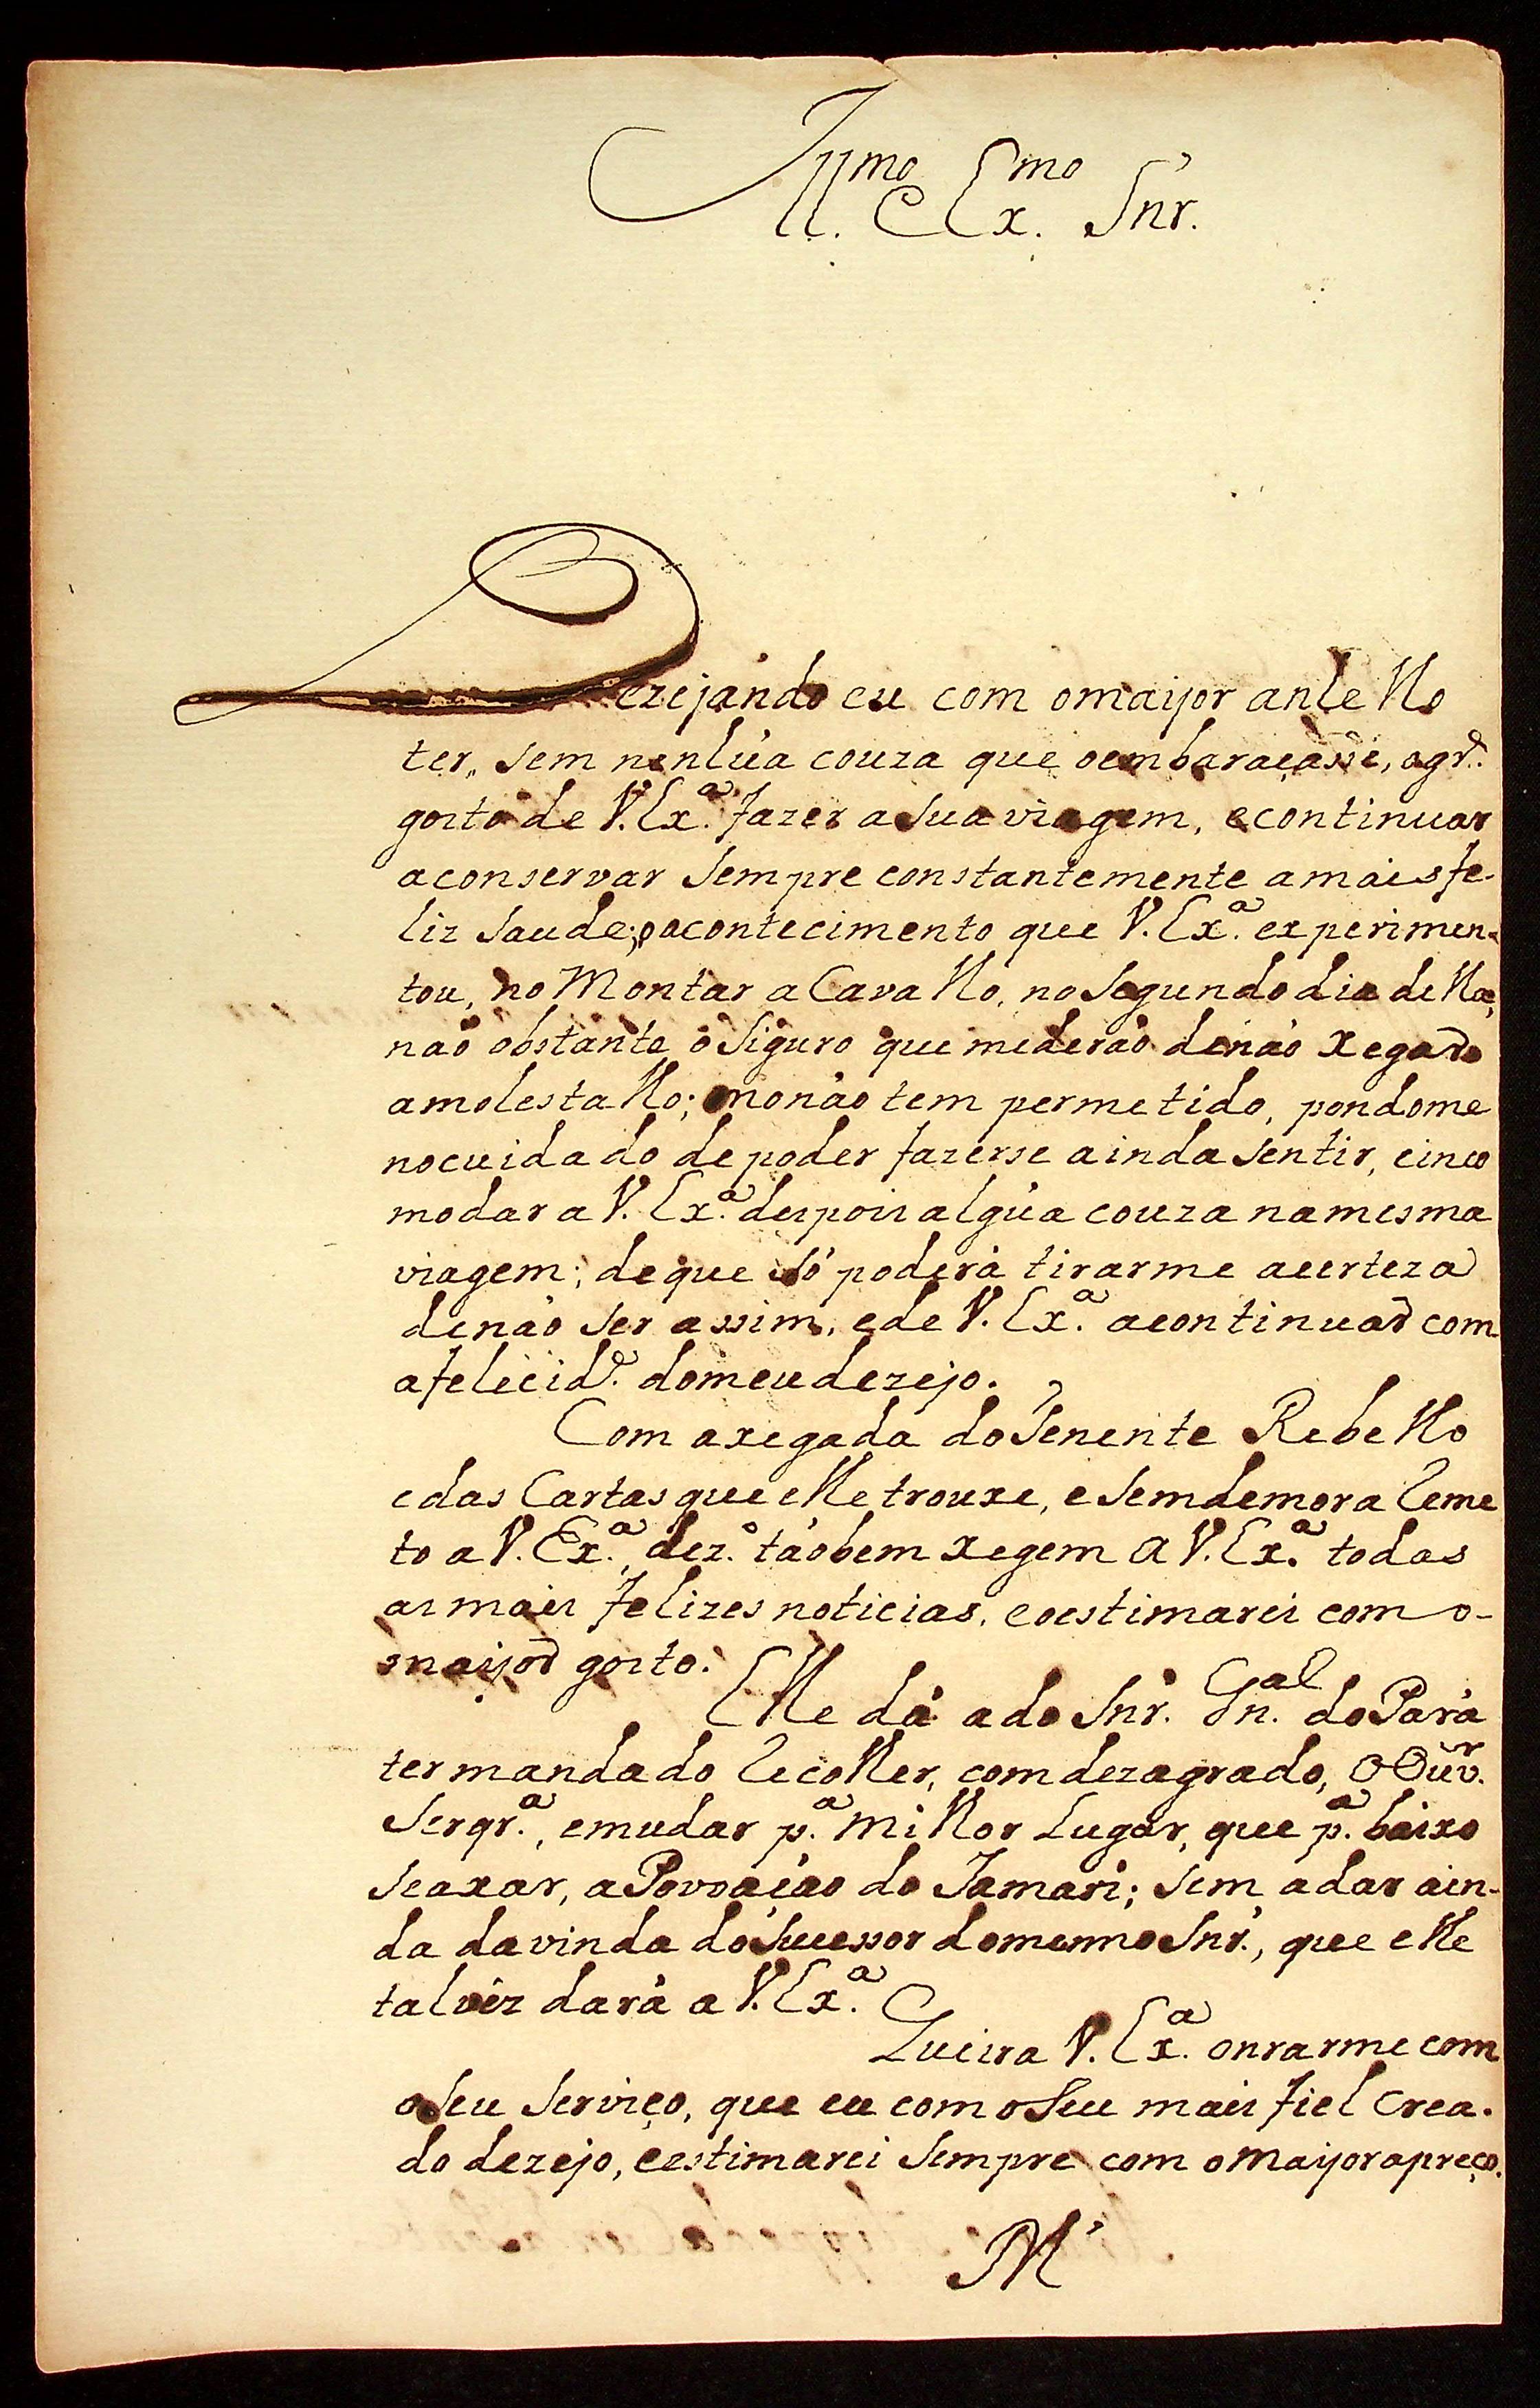 Ill.mo e Ex.mo Snr.
Dezejando eu com o maijor anlello
ter, sem nenlúa couza que o embaraçasse, o gr.de
gosto de V. Ex.a fazer a sua viagem, e continuar
a conservar sempre constantemente a mais fe-
liz saude; o acontecimento que V. Ex.a experimen-
tou, no Montar a Cavallo, no segundo dia della,
naõ obstante o siguro que me deraõ de naõ xegar
a molestallo; mo naõ tem permetido, pondome
no cuidado de poder fazerse ainda sentir, e inco
modar a V. Ex.a despois algúa couza na mesma
viagem; de que só poderá tirarme a certeza
de naõ ser assim, e de V. Ex.a a continuar com
a felecid.e do meu dezejo.
Com a xegada do Tenente Rebello
e das Cartas que elle trouxe, e sem demora reme
to a V. Ex.a, dez.o taõbem xegem a V. Ex.a todas
as mais felizes noticias, e o estimarei com o-
maijor gosto.
Elle dá a do Snr. Gn.al do Pará
ter mandado recoller, com dezagrado, o Ouv.r
Serqr.a, e mudar p.a millor Lugar, que p.a baixo
se axar, a Povoaçaõ do Jamari; sem a dar ain-
da da vinda do sucessor do mesmo Snr., que elle
talvéz dará a V. Ex.a
Queira V. Ex.a onrarme com
o seu serviço, que eu com o seu mais fiel crea-
do dezejo, e estimarei sempre com o maijor apreço.
M